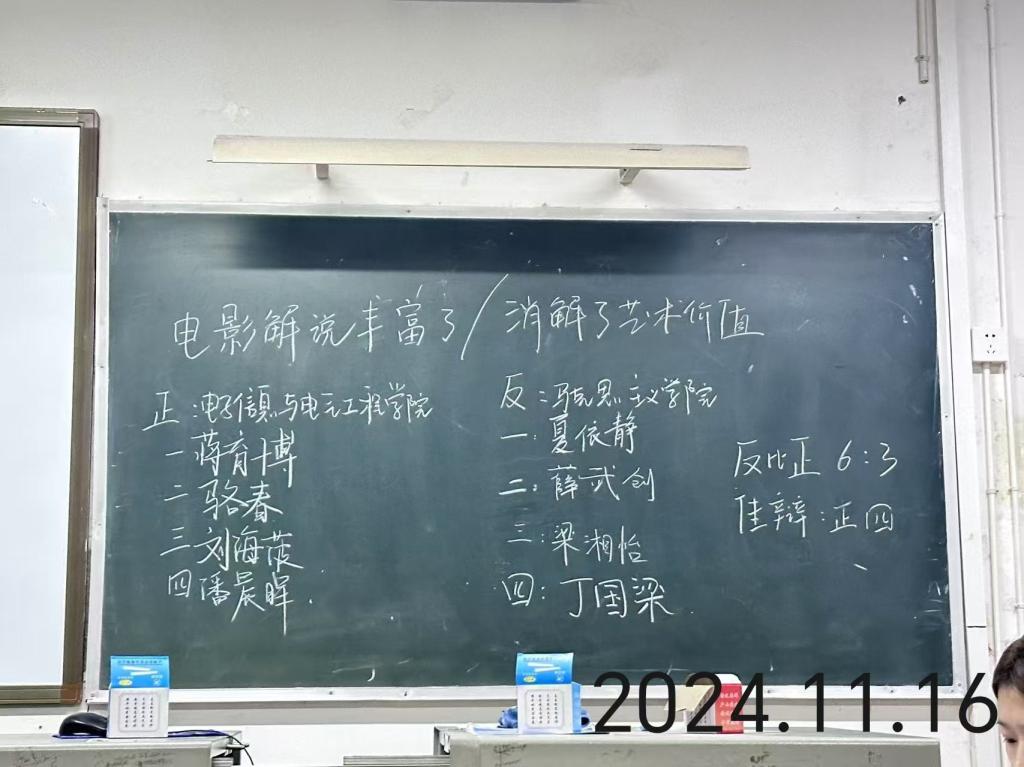 电影解说丰富了/消解了艺术价值
正:电子信息与电气工程学院
一蒋育博
二骆春
三刘海菠
四潘晨晖.
反:马克思主义学院
一:夏依静
二:薛武创
三:梁湘怡
四:丁国梁
反比正 6:3
佳辩:正四
2024.11.16